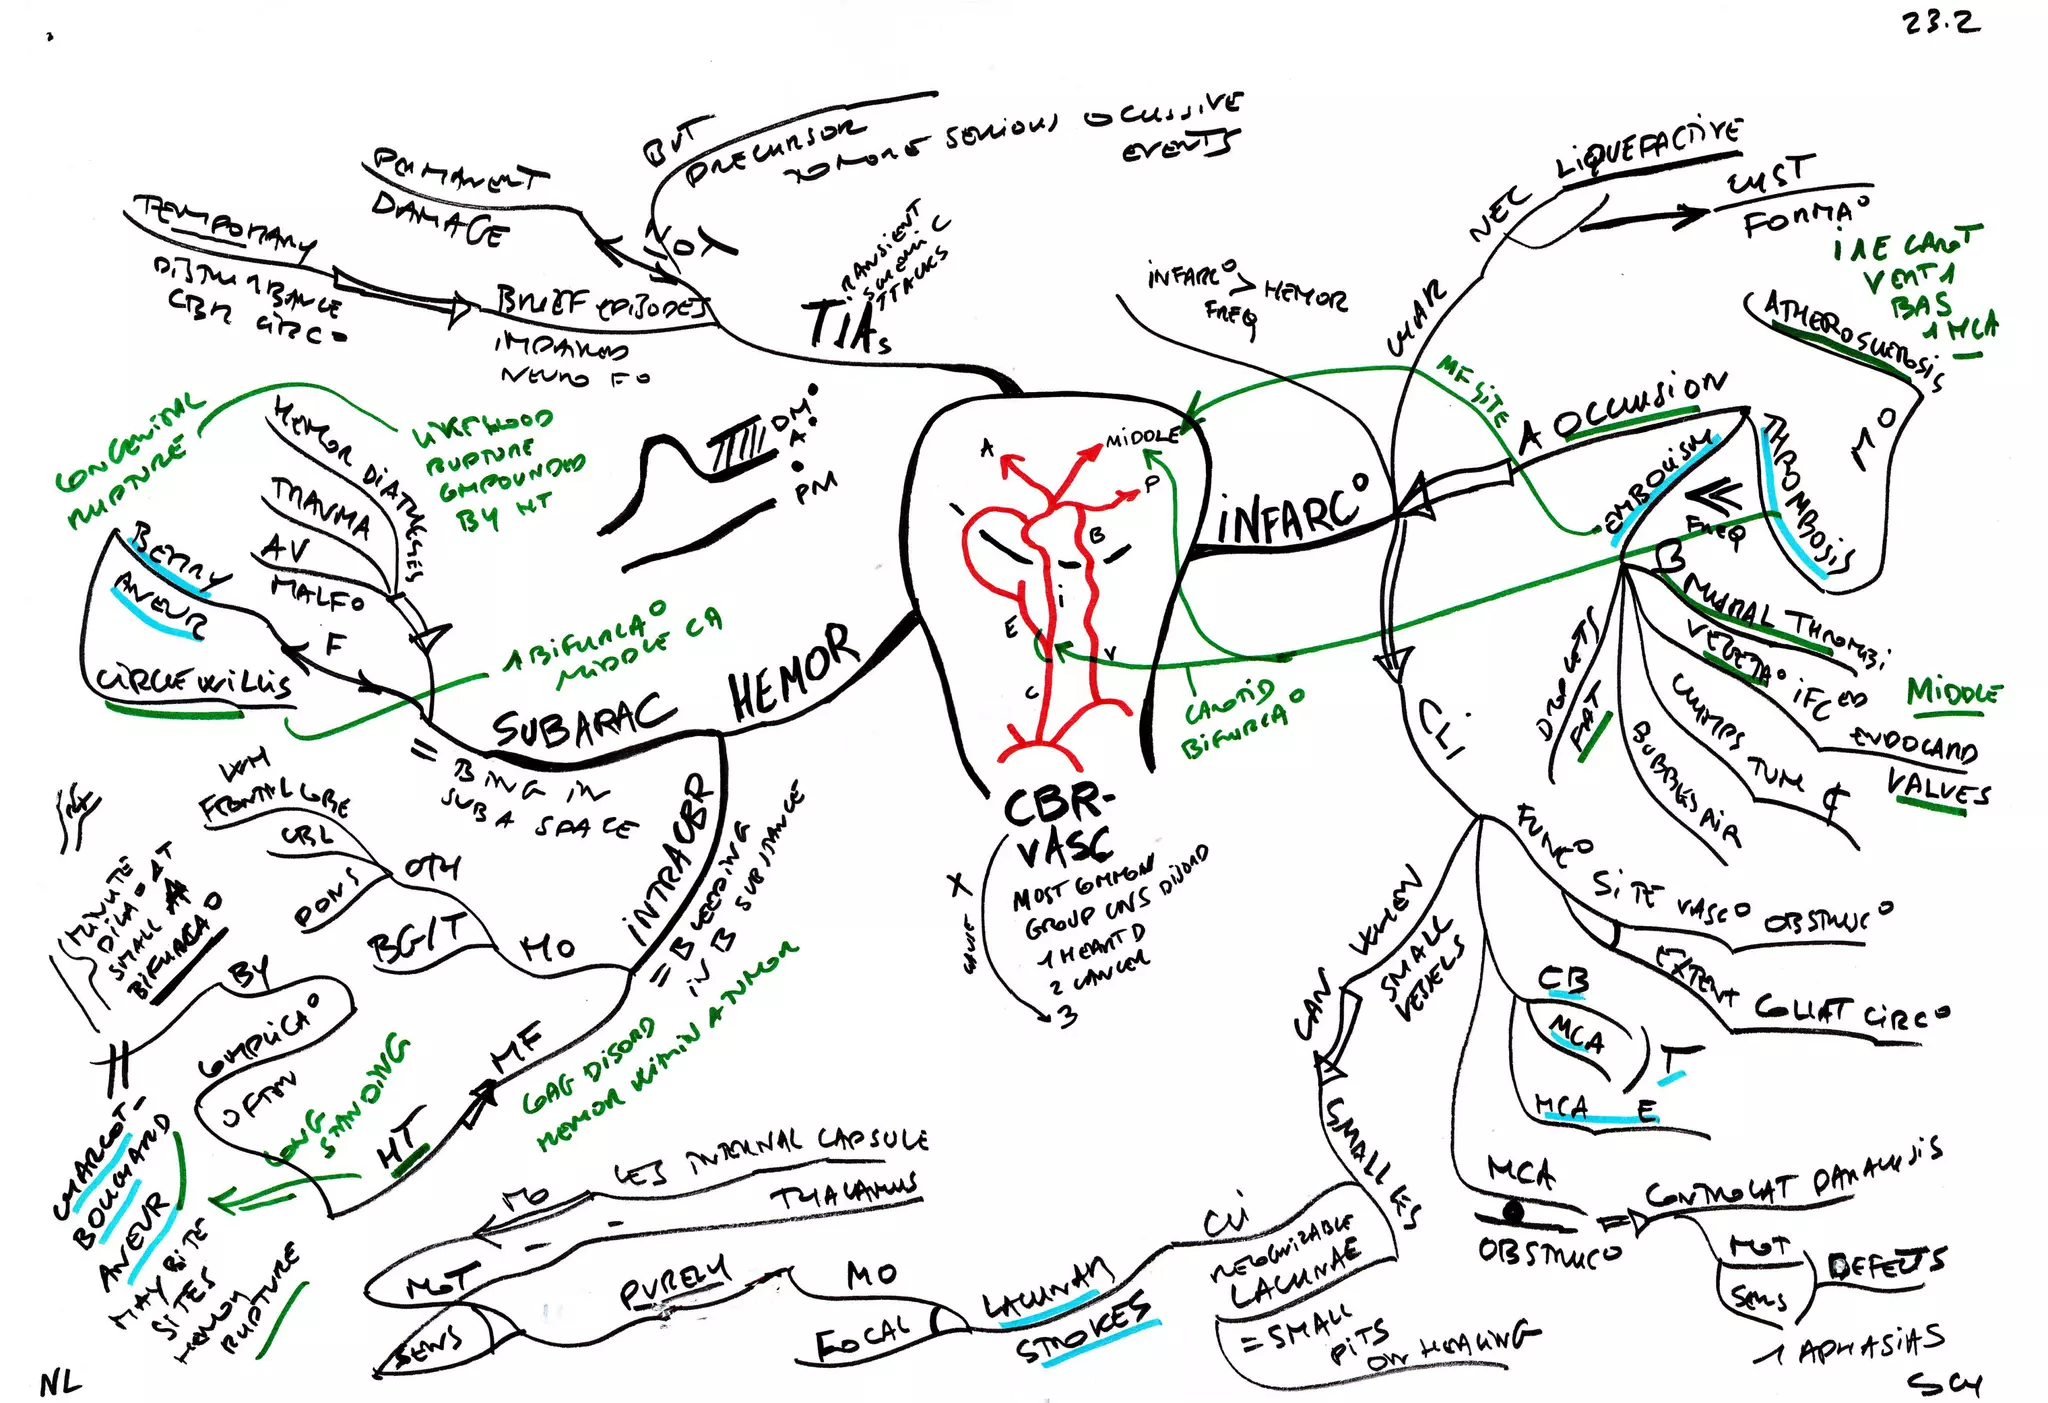 23.2
BUT
PRECURSOR
TO MORE SERIOUS OCCLUSIVE
EVENTS
PERMANENT
DAMAGE
NOT
TEMPORARY
DISTURBANCE
CBR CIRCO
BRIEF EPISODES
IMPAIRED
NEURO FO
TIAs
TRANSIENT
ISCHEMIC
ATTACKS
INFARCO > HEMOR
FREQ
CHAR
NEC
LIQUEFACTIVE
CYST
FORMAO
CAROT
VERT
BAS
1 MCA
ATHEROSCLEROSIS
MO
MF SITE
A OCCLUSION
THROMBOSIS
EMBOLISM
FREQ
INFARCO
B
MURAL THROMBI
VEGETAO IFCED
ENDOCARD
VALVES
MIDDLE
CLUMPS TUM
BUBBLES AIR
DROPLETS
FAT
CONGENITAL
RUPTURE
LIKELIHOOD
RUPTURE
COMPOUNDED
BY HT
DM
A
PM
HEMOR DIATHESES
TRAUMA
AV
MALFO
BERRY
ANEUR
F
CIRCLE WILLIS
1 BIFURCAO
MIDDLE CA
A
MIDDLE
P
B
i
E
V
C
CAROTID
BIFURCAO
HEMOR
SUBARAC
= BING IN
SUBA SPACE
INTRACBR
= BLEEDING
IN B SUBSTANCE
CBR-
VASC
MOST COMMON
GROUP CNS DISORD
1 HEART D
2 CANCER
3
CAUSE X
WM
FRONTAL LOBE
CBL
PONS
OTH
BG/T
MO
MF
COAG DISORD
HEMOR WITHIN A TUMOR
HT
LONG
STANDING
MINUTE
DILAO AT
SMALL A
BIFURCAO
BY
COMPLICAO
OFTEN
CHARCOT-
BOUCHARD
ANEUR
MAY B
SITES
RUPTURE
CLI
FUNCO SITE VASCO OBSTRUCO
EXTENT COLLAT CIRCO
CB
MCA
T
MCA E
MCA
OBSTRUCO
CONTROLAT PARALYSIS
MOT
SENS
DEFECTS
1 APHASIAS
CAN WHEN
SMALL
VESSELS
CAN
SMALL LES
CLI
RECOGNIZABLE
LACUNAE
= SMALL
PITS
ON HEALING
LACUNAR
STROKES
MO
FOCAL
PURELY
MOT
SENS
MO
LES INTERNAL CAPSULE
THALAMUS
NL